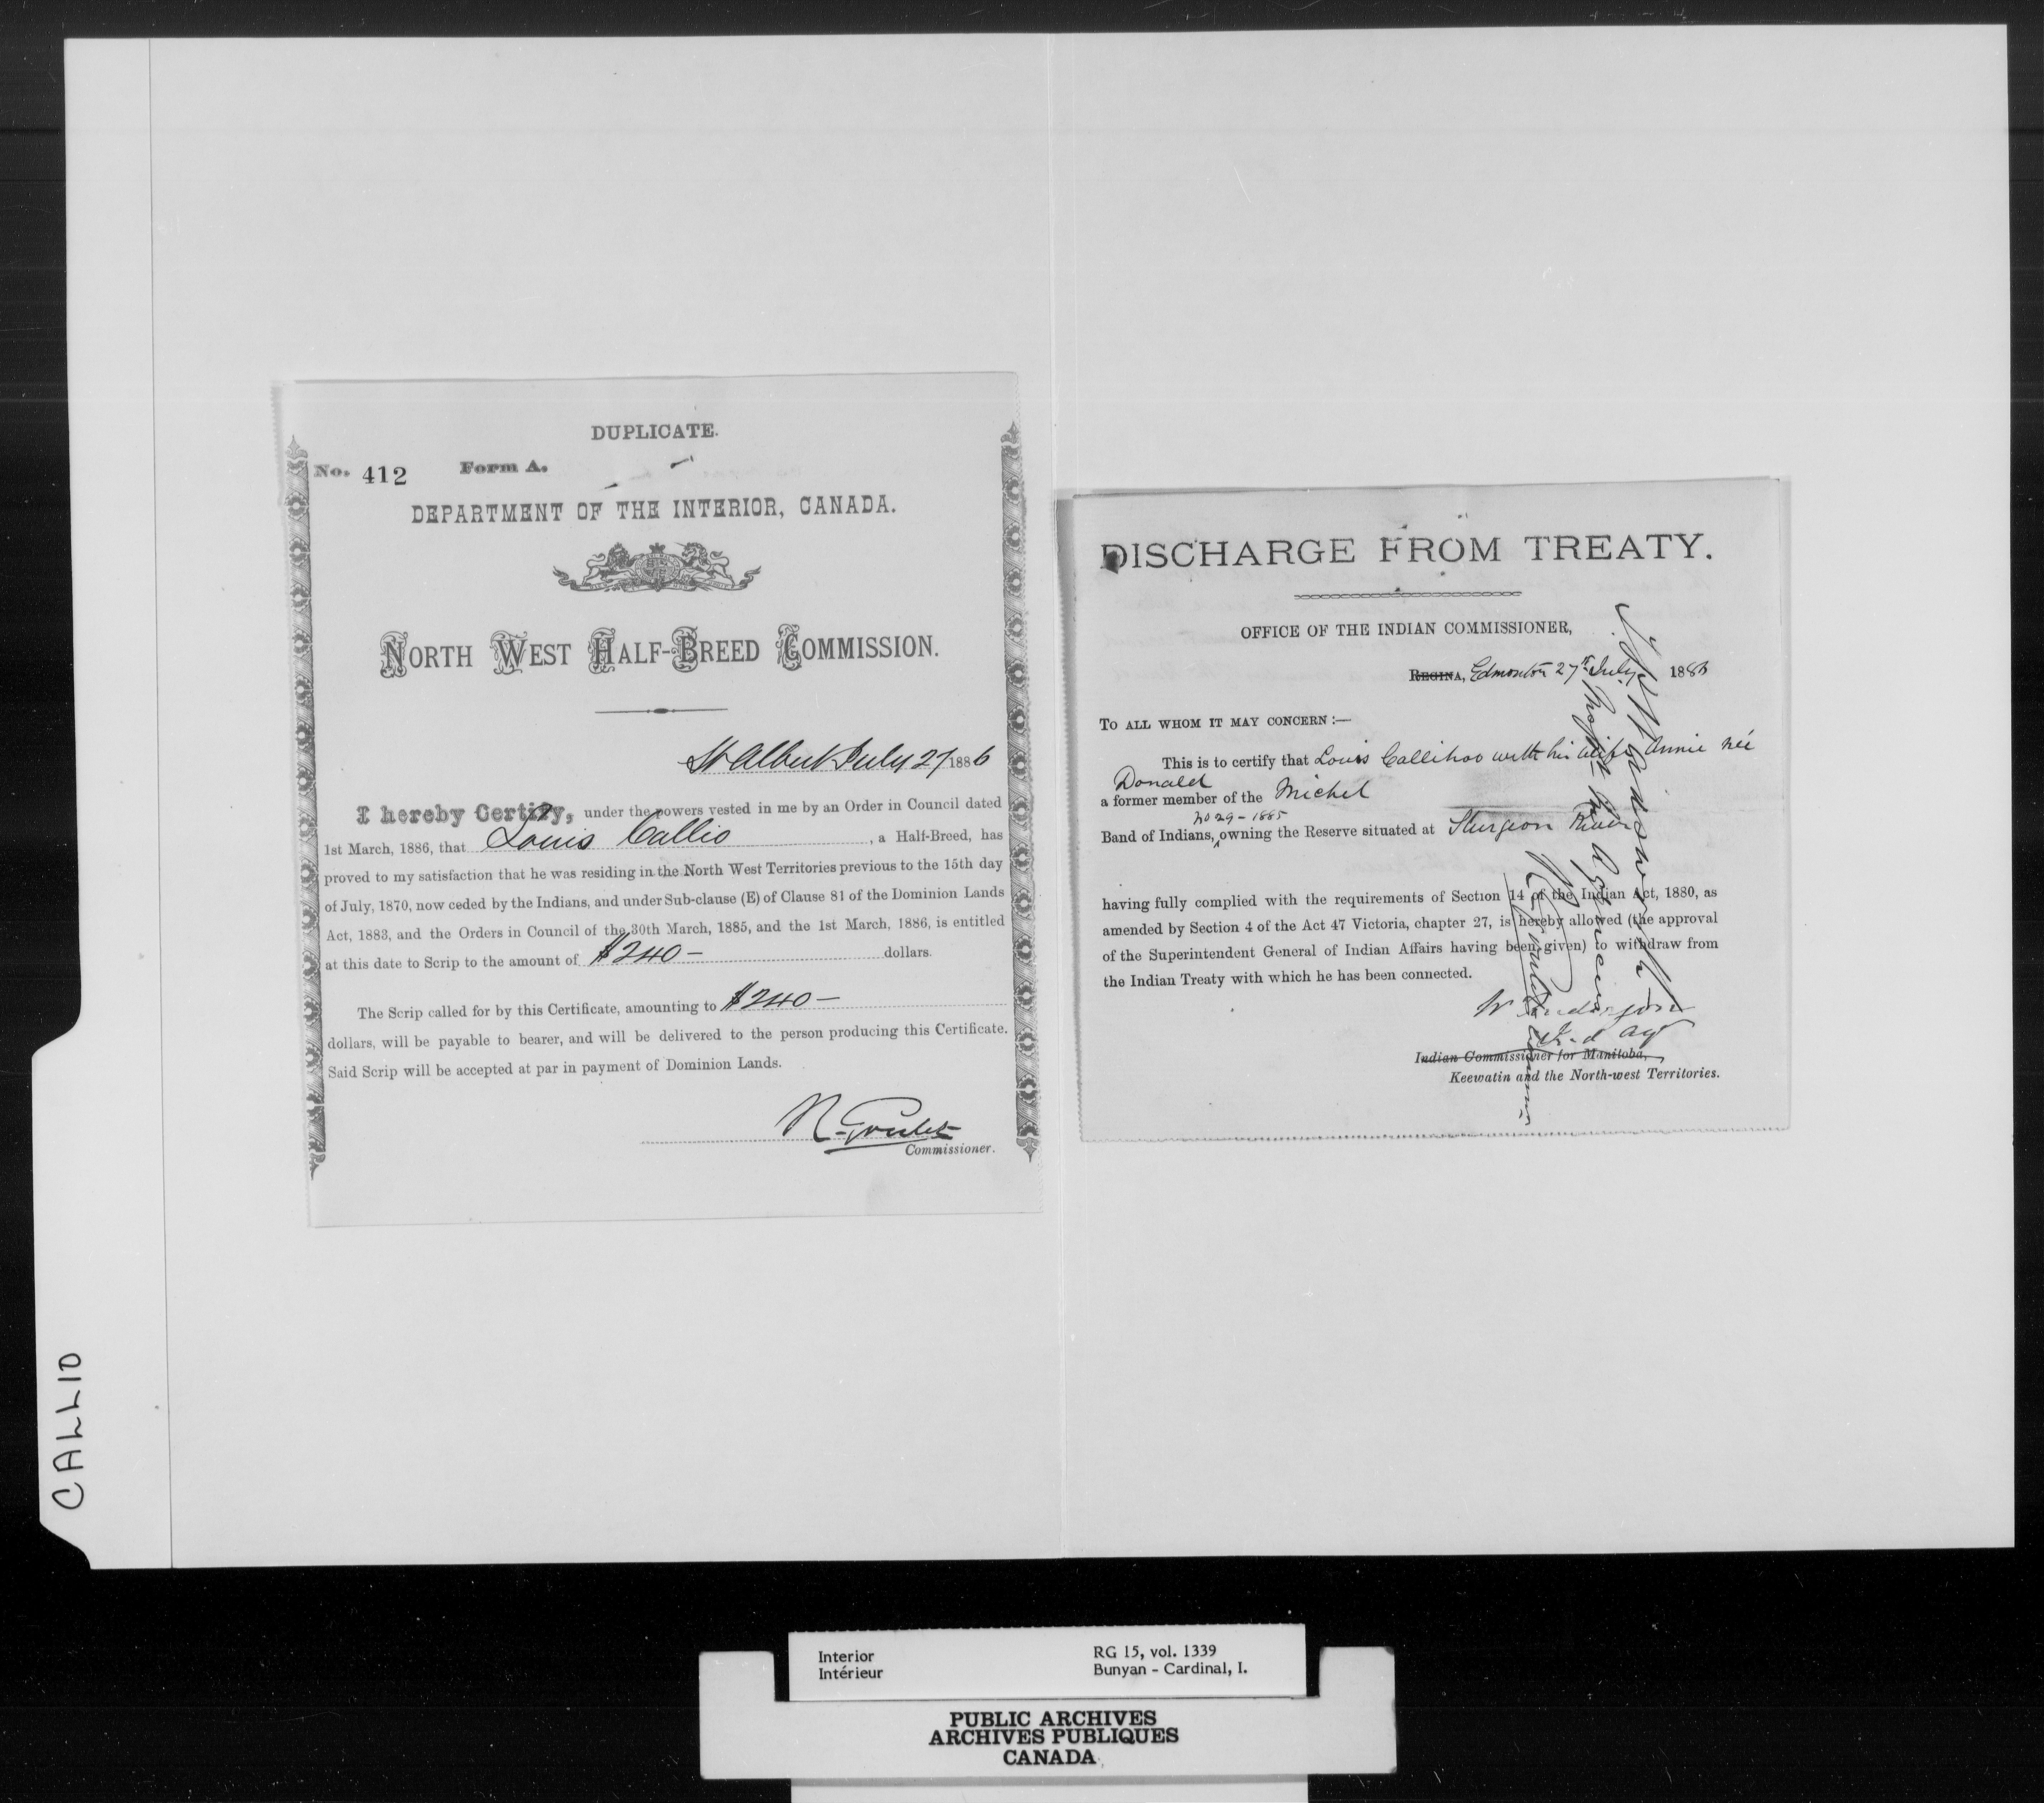 DUPLICATE.
No. 412 Form A.
DEPARTMENT OF THE INTERIOR, CANADA.
NORTH WEST HALF-BREED COMMISSION.
St Albert July 27 1886
I hereby Certify, under the powers vested in me by an Order in Council dated
1st March, 1886, that Louis Callio, a Half-Breed, has
proved to my satisfaction that he was residing in the North West Territories previous to the 15th day
of July, 1870, now ceded by the Indians, and under Sub-clause (E) of Clause 81 of the Dominion Lands
Act, 1883, and the Orders in Council of the 30th March, 1885, and the 1st March, 1886, is entitled
at this date to Scrip to the amount of $240— dollars.
The Scrip called for by this Certificate, amounting to $240—
dollars, will be payable to bearer, and will be delivered to the person producing this Certificate.
Said Scrip will be accepted at par in payment of Dominion Lands.
N. Goulet
Commissioner.
DISCHARGE FROM TREATY.
OFFICE OF THE INDIAN COMMISSIONER,
REGINA, Edmonton 27th July 1886
TO ALL WHOM IT MAY CONCERN :—
This is to certify that Louis Callihoo with his wife Annie née
Donald
a former member of the Michel
No 29 - 1885
Band of Indians, owning the Reserve situated at Sturgeon River
having fully complied with the requirements of Section 14 of the Indian Act, 1880, as
amended by Section 4 of the Act 47 Victoria, chapter 27, is hereby allowed (the approval
of the Superintendent General of Indian Affairs having been given) to withdraw from
the Indian Treaty with which he has been connected.
W Anderson
Ind Agt
Indian Commissioner for Manitoba,
Keewatin and the North-west Territories.
CALLIO
Interior RG 15, vol. 1339
Intérieur Bunyan - Cardinal, I.
PUBLIC ARCHIVES
ARCHIVES PUBLIQUES
CANADA